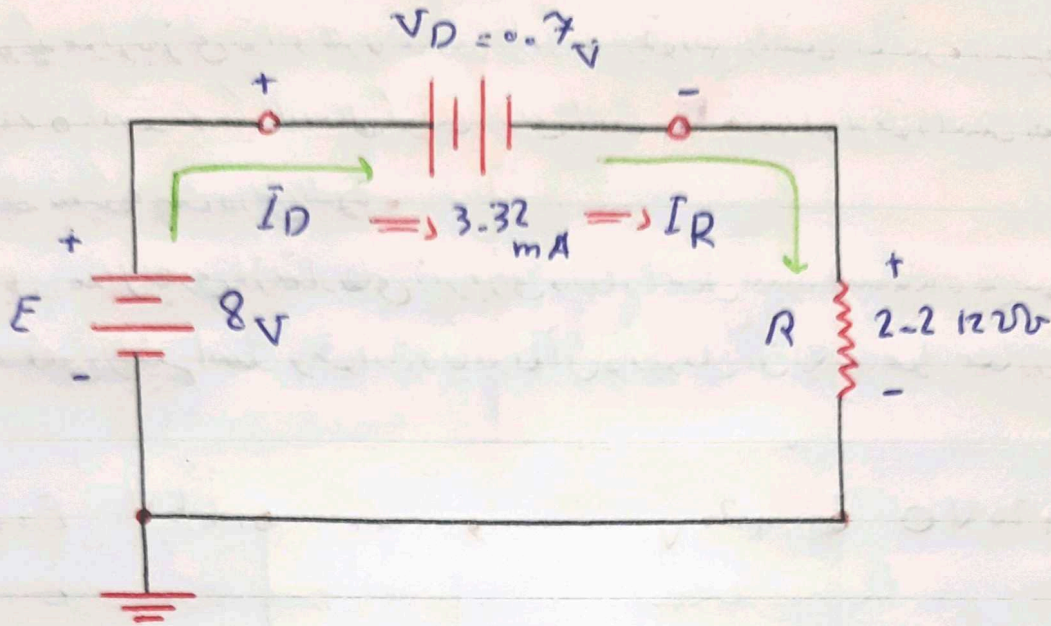 VD = 0.7 V
+
-
ID => 3.32 mA => IR
+
E
8V
-
R
+
2.2
-